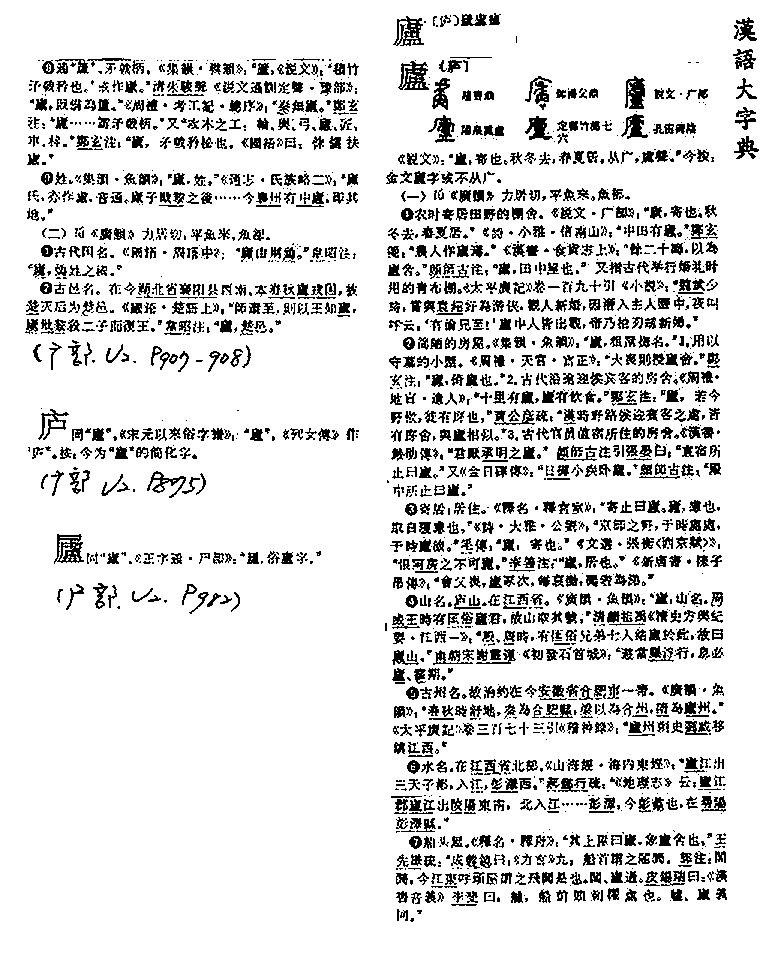 漢語大字典
廬
(庐)
廬
〔庐〕
趙曹鼎
説文·广部
孔宙碑陰
《説文》:“廬,寄也。秋冬去,春夏居。从广,盧聲。”今按:
金文廬字或不从广。
(一) lú 《廣韻》力居切,平魚來。魚部。
❶农时寄居田野的棚舍。《説文·广部》:“廬,寄也。秋
冬去,春夏居。”《詩·小雅·信南山》:“中田有廬。”鄭玄
箋:“農人作廬焉。”《漢書·食貨志上》:“餘二十畮,以為
廬舍。”顔師古注:“廬,田中屋也。”又指古代举行婚礼时
用的青布棚。《太平廣記》卷一百九十引《小説》:“魏武少
時,嘗與袁紹好為游俠,觀人新婚,因潛入主人園中,夜叫
呼云:‘有偷兒至!’廬中人皆出觀,帝乃抽刃劫新婦。”
❷简陋的房屋。《集韻·魚韻》:“廬,粗屋總名。”1.用以
守墓的小屋。《周禮·天官·宫正》:“大喪則授廬舍。”鄭
玄注:“廬,倚廬也。”2.古代沿途迎候宾客的房舍。《周禮·
地官·遺人》:“十里有廬,廬有飲食。”鄭玄注:“廬,若今
野候,徙有庌也。”賈公彦疏:“漢時野路候迎賓客之處,皆
有庌舍,與廬相似。”3.古代官员值宿所住的房舍。《漢書·
嚴助傳》:“君厭承明之廬。”顔師古注引張晏曰:“直宿所
止曰廬。”又《金日磾傳》:“日磾小疾卧廬。”顔師古注:“殿
中所止曰廬。”
❸寄居;居住。《釋名·釋宫室》:“寄止曰廬。廬,慮也,
取自覆慮也。”《詩·大雅·公劉》:“京師之野,于時處處,
于時廬旅。”毛傳:“廬,寄也。”《文選·張衡〈西京賦〉》:
“恨阿房之不可廬。”李善注:“廬,居也。”《新唐書·陳子
昂傳》:“會父喪,廬冢次,每哀慟,聞者為涕。”
❹山名。庐山。在江西省。《廣韻·魚韻》:“廬,山名。周
威王時有匡俗廬君,故山取其號。”清顧祖禹《讀史方輿紀
要·江西一》:“殷、周時,有匡俗兄弟七人結廬於此,故曰
廬山。”南朝宋謝靈運《初發石首城》:“遊當羅浮行,息必
廬、霍期。”
❺古州名。故治约在今安徽省合肥市一带。《廣韻·魚
韻》:“春秋時舒地,秦為合肥縣,梁以為合州,隋為廬州。”
《太平廣記》卷三百七十三引《稽神録》:“廬州刺史劉威移
鎮江西。”
❻水名。在江西省北部。《山海經·海内東經》:“廬江出
三天子都,入江,彭澤西。”郝懿行疏:“《地理志》云:廬江
郡廬江出陵陽東南,北入江……彭澤,今彭蠡也,在尋陽
彭澤縣。”
❼船头屋。《釋名·釋船》:“其上屋曰廬,象廬舍也。”王
先謙疏
同。”
❽通“籚”。矛戟柄。《集韻·模韻》:“廬,《説文》:‘積竹
矛戟矜也。’或作廬。”清朱駿聲《説文通訓定聲·豫部》:
“廬,叚借為籚。”《周禮·考工記·總序》:“秦無廬。”鄭玄
注:“廬……謂矛戟柄。”又“攻木之工:輪、輿、弓、廬、匠、
車、梓。”鄭玄注:“廬,矛戟矜柲也。《國語》曰:侏儒扶
廬。”
❾姓。《集韻·魚韻》:“廬,姓。”《通志·氏族略二》:“廬
氏,亦作盧,音通。廬子戢黎之後……今襄州有中廬,即其
地。”
(二) lǘ 《廣韻》力居切,平魚來。魚部。
❶古代国名。《國語·周語中》:“廬由荆嬀。”韋昭注:
“廬,嬀姓之國。”
❷古邑名。在今湖北省襄阳县西南,本春秋廬戎国,被
楚灭后为楚邑。《國語·楚語上》:“師還至,則以王如廬,
廬戢黎殺二子而復王。”韋昭注:“廬,楚邑。”
(广部. V2. P907-908)
庐 同“廬”。《宋元以來俗字譜》:“廬”,《列女傳》作
“庐”。按:今为“廬”的简化字。
(广部 V2. P875)
同“廬”。《正字通·尸部》:“俗廬字。”
(尸部. V2. P982)